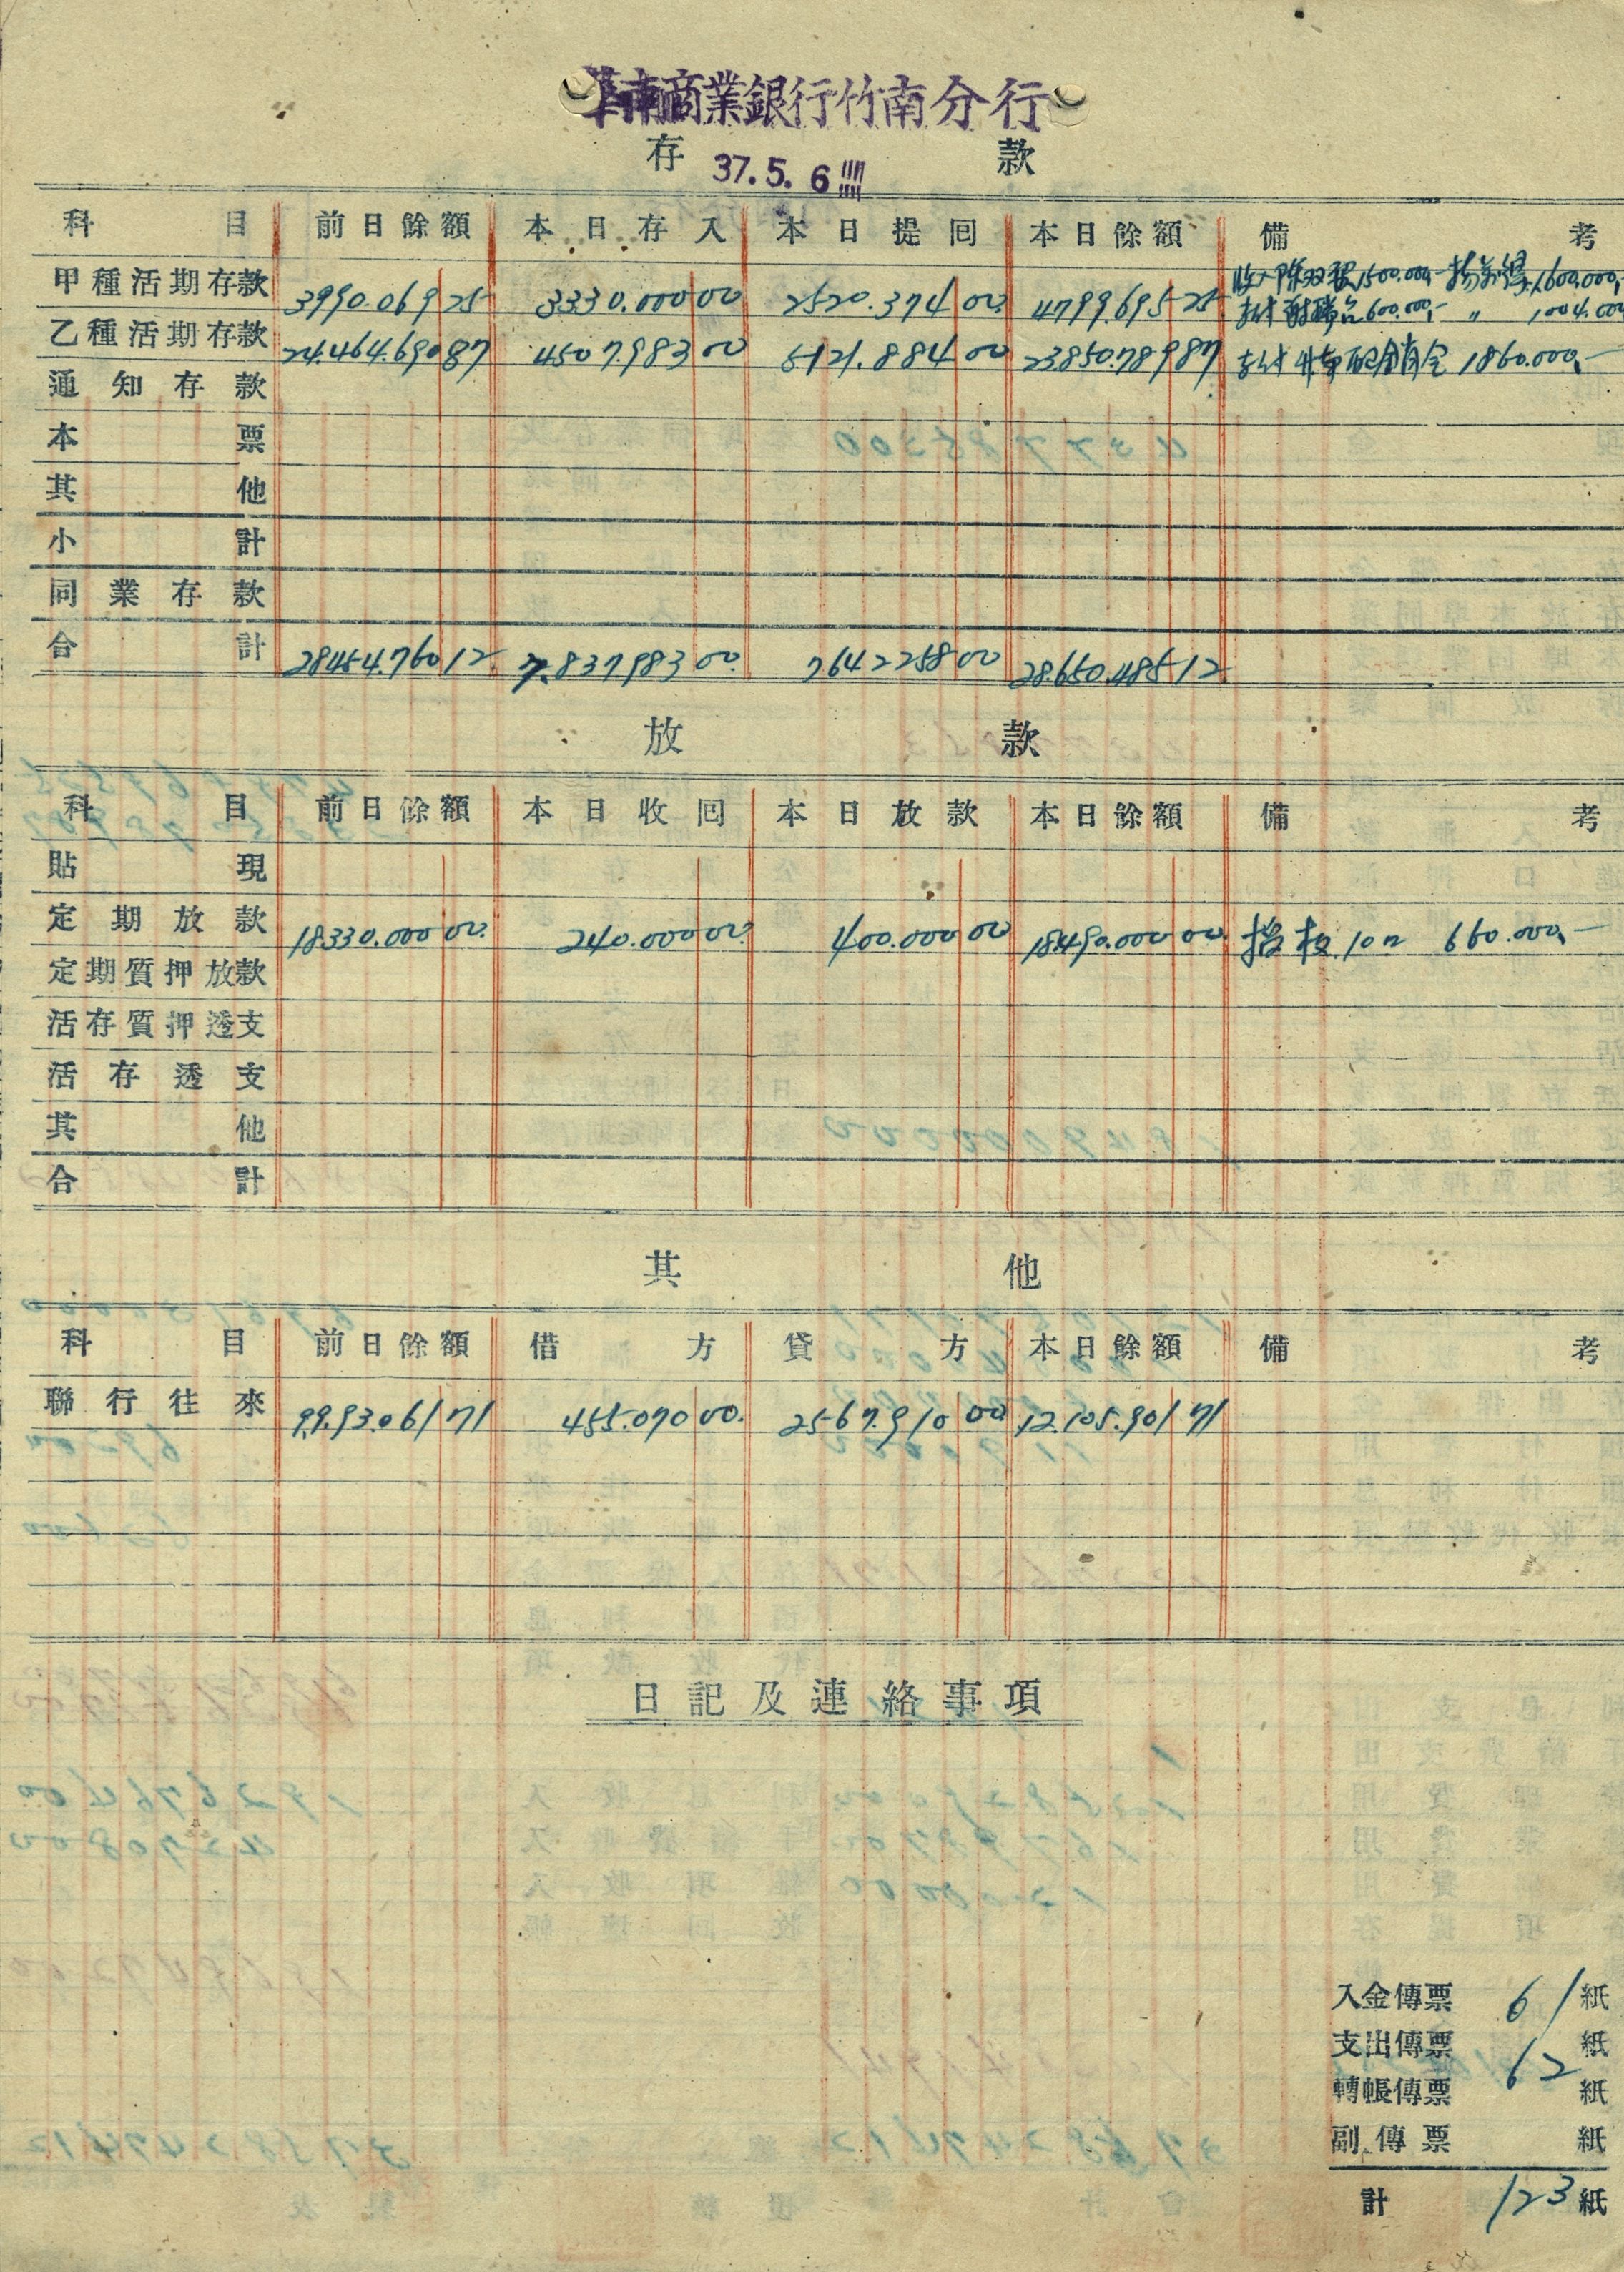 華南商業銀行竹南分行
存款
37.5.6
科目 前日餘額 本日存入 本日提回 本日餘額 備考
甲種活期存款 3990.069 25 3330.000 00 2520.374 00 4799.695 25 1500.000,- 1600.000,-
600.000,- 〃 1004.000
乙種活期存款 24.464.690 87 4507.983 00 5121.884 00 23850.789 87 1860.000,-
通知存款
本票
其他
小計
同業存款
合計 28454.760 12 7.837.983 00 7642258 00 28.650.485 12
放款
科目 前日餘額 本日收回 本日放款 本日餘額 備考
貼現
定期放款 18330.000 00 240.000 00 400.000 00 18490.000 00 660.000,-
定期質押放款
活存質押透支
活存透支
其他
合計
其他
科目 前日餘額 借方 貸方 本日餘額 備考
聯行往來 9.993.061 71 455.070 00 2567.910 00 12.105.901 71
日記及連絡事項
入金傳票 61 紙
支出傳票 62 紙
轉帳傳票 紙
副傳票 紙
計 123 紙